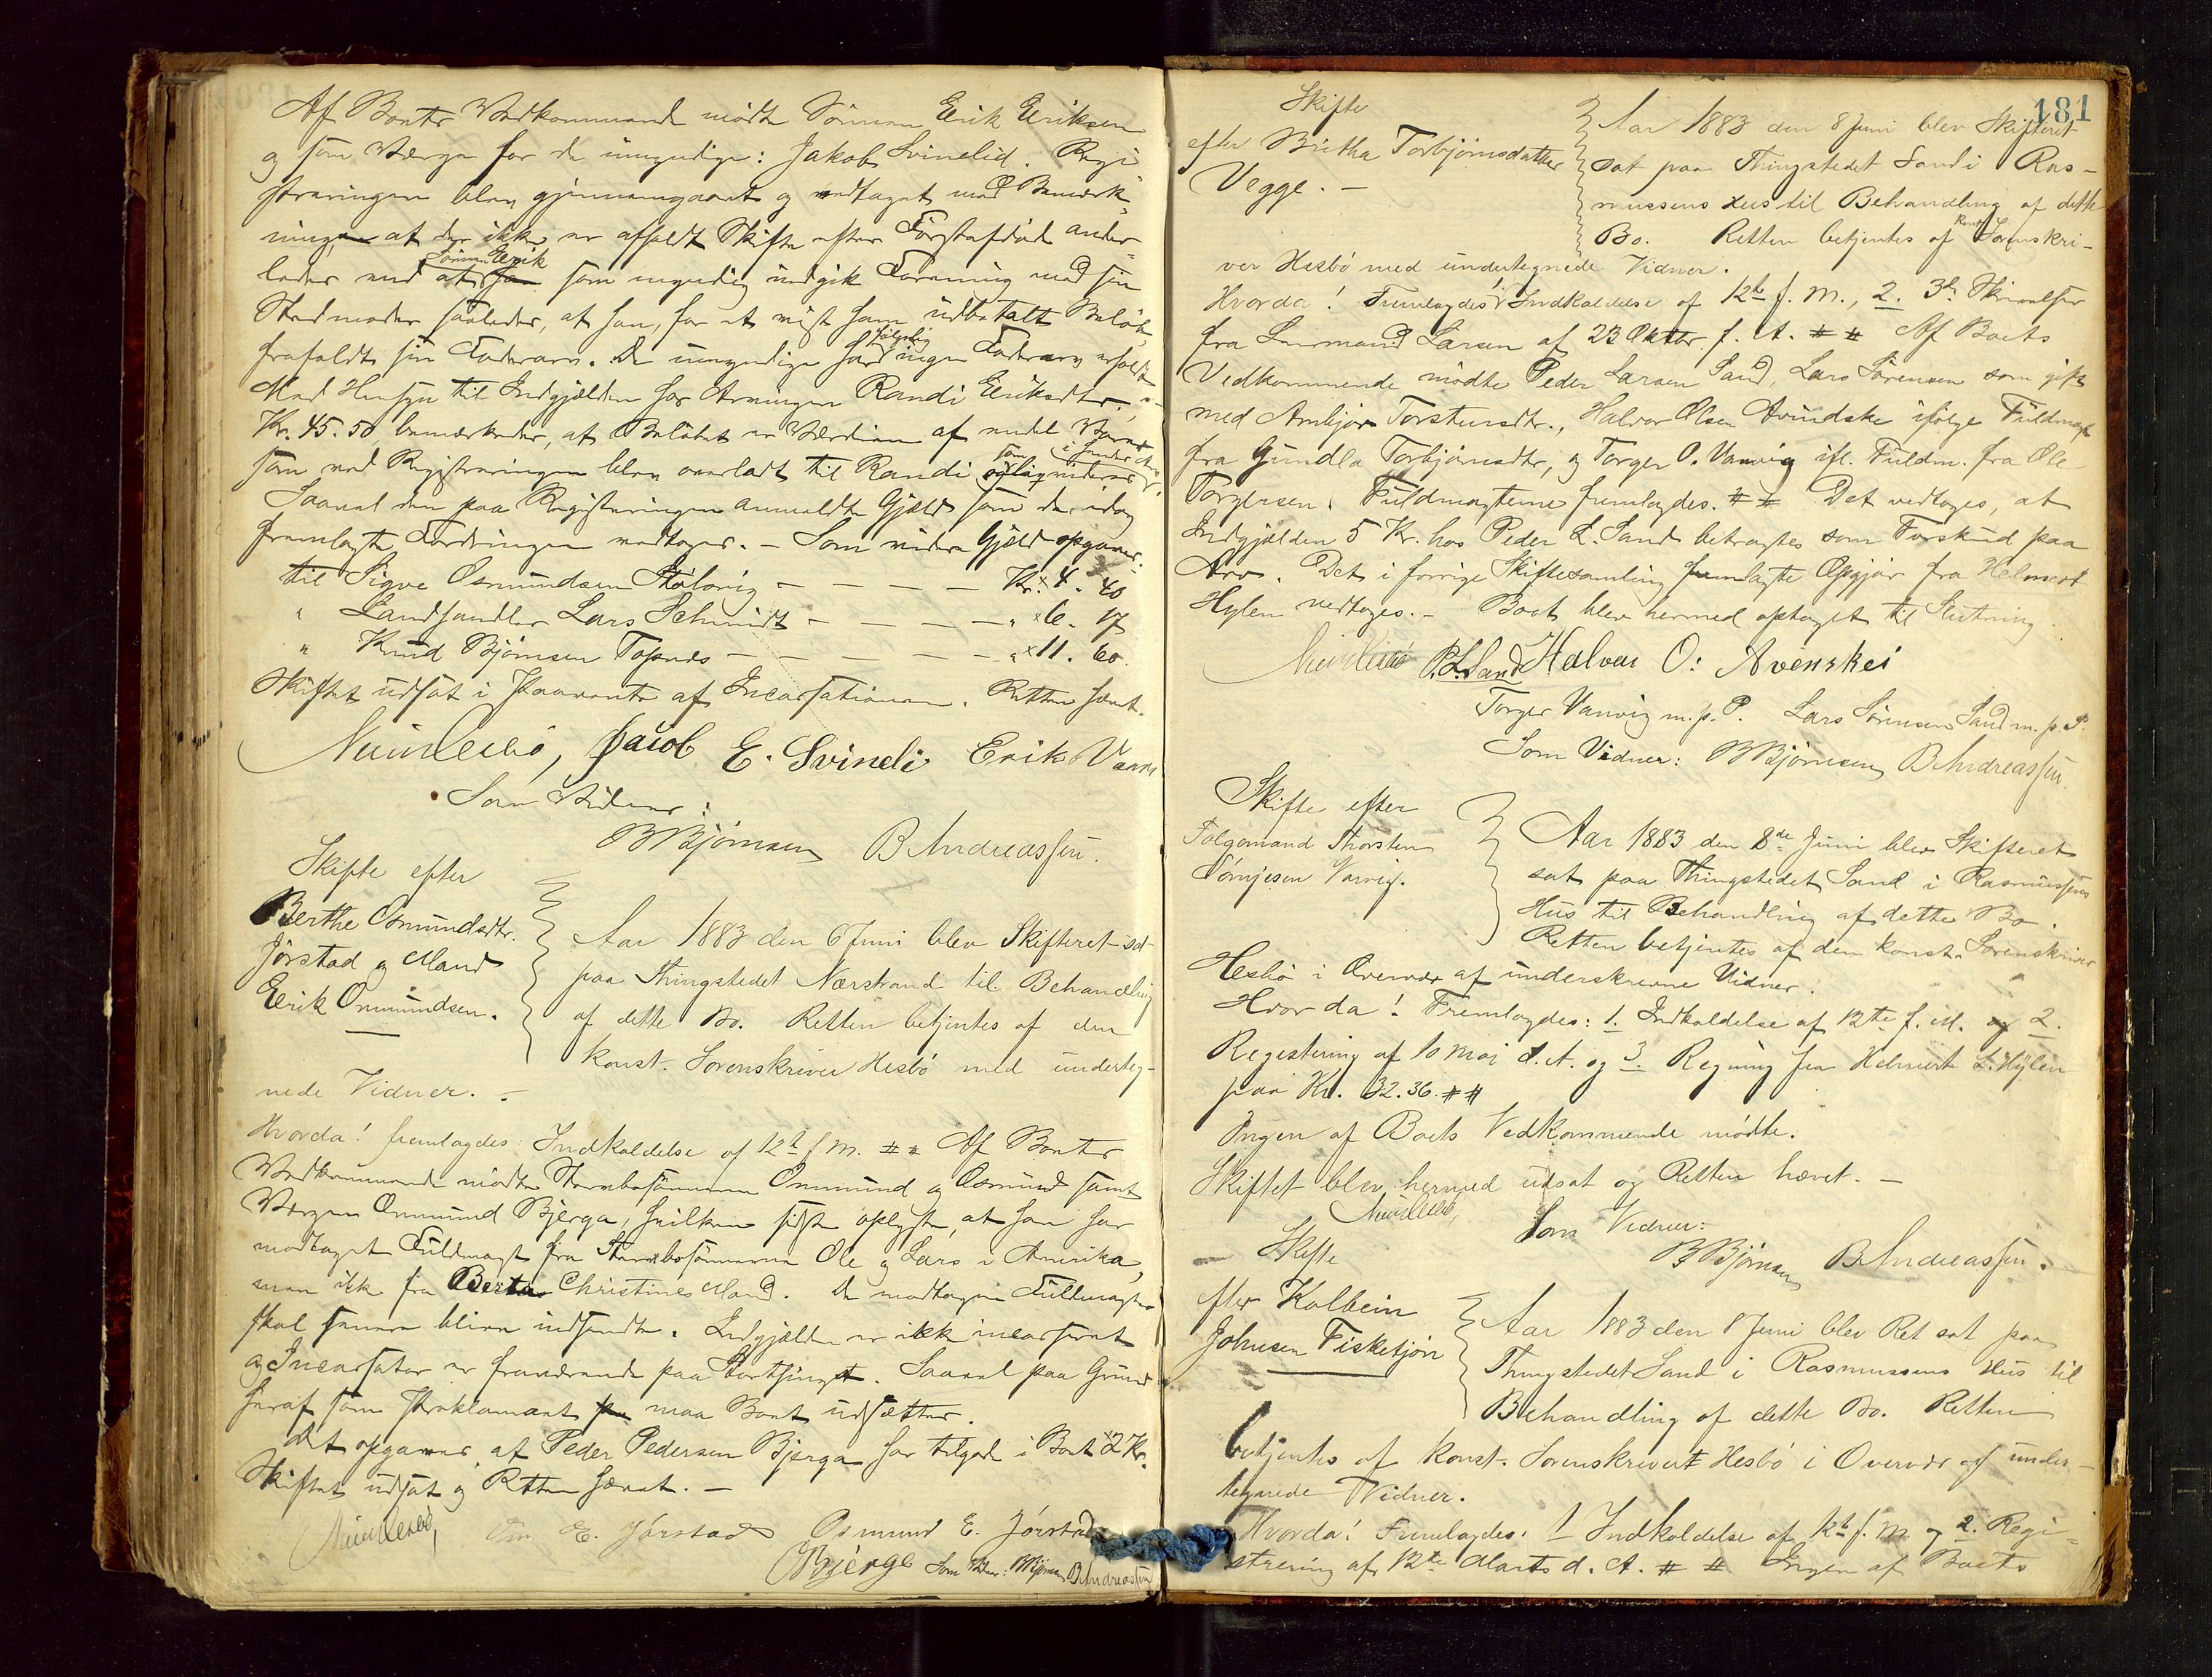 Af Boets Vedkommende mødte Sønnen Erik Eriksen
og som Værge for de umyndige: Jakob Svinelid. Regi-
streringen blev gjennemgaaet og vedtaget med Bemærk-
ning, at der ikke er afholdt Skifte efter Førstafdøde ander-
ledes end at Sønnen Erik som myndig indgik Forening med sin
Stedmoder saaledes, at han, for et vist ham udbetalt Beløb,
frafaldt sin Faderarv. De umyndige har følgelig ingen Faderarv erholdt.
Med Hensyn til Indgjælden hos Arvingen Randi Eriksdtr.,
Kr. 45.50 bemærkedes, at Beløbet er Værdien af endel Varer
som ved Registreringen blev overladt til Randi
Saavel den paa Registreringen anmeldte Gjæld som de idag
fremlagte Fordringer vedtages. – Som videre Gjæld opgaves:
til Sigve Osmundsen Stølsvig – – – – Kr. × 4. 40
" Landhandler Lars Schmidt – – – – " × 6. 17
" Knud Bjørnsen Topnes – – – – " × 11. 60.
Skiftet udsat i Paavente af Incassationen. Retten hævet.
Jacob E. Svineli Erik Vaage
Som Vidner:
B Bjørnsen B Andreassen.
Skifte efter
Berthe Osmundsdtr.
Jørstad og Mand
Erik Onmundsen.
Aar 1883 den 6 Juni blev Skifteret sat
paa Thingstedet Nærstrand til Behandling
af dette Bo. Retten betjentes af den
konst. Sorenskriver Hesbø med underteg-
nede Vidner. –
Hvorda! fremlagdes: Indkaldelse af 12te f. M. ⌗ ⌗ Af Boets
Vedkommende mødte Stervbosønnerne Onmund og Osmund samt
Værgen Onmund Bjerga, hvilken sidste oplyste, at han har
modtaget Fuldmagt fra Stervbosønnerne Ole og Lars i Amerika,
men ikke fra Berta Christines Mand. De modtagne Fuldmagter
skal senere blive indsendte. Indgjælden er ikke incasseret
og Incassator er fraværende paa Storthinget. Saavel paa Grund
heraf som Proklamaet maa Boet udsættes.
Det opgaves, at Peder Pedersen Bjerga har tilgode i Boet × 2 Kr.
Skiftet udsat og Retten hævet. –
On. E. Jørstad Osmund E. Jørstad
Bjerge Som Vidner: B Bjørnsen B Andreassen
181
Skifte
efter Britha Torbjørnsdatter
Vegge. –
Aar 1883 den 8 Juni blev Skifteret
sat paa Thingstedet Sand i Ras-
mussens Hus til Behandling af dette
Bo. Retten betjentes af konst. Sorenskri-
ver Hesbø med undertegnede Vidner.
Hvorda! Fremlagdes 1 Indkaldelse af 12te f. M., 2. 3de Skrivelser
fra Lensmand Larsen af 23 Oktbr. f. A. ⌗ ⌗ Af Boets
Vedkommende mødte Peder Larsen Sand, Lars Sørensen som gift
med Ambjør Torstensdtr., Halvor Olsen Avindske ifølge Fuldmagt
fra Gundla Torbjørnsdtr, og Torger O. Vanvig ifl. Fuldm. fra Ole
Torgersen. Fuldmagterne fremlagdes. ⌗ ⌗ Det vedtoges, at
Indgjælden 5 Kr. hos Peder L. Sand betragtes som Forskud paa
Arv. Det i forrige Skiftesamling fremlagte Opgjør fra Helmert
Hylen vedtoges. – Boet blev hermed optaget til Slutning.
P. L. Sand Halvor O: Avenskei
Torger Vanvig m. p. P. Lars Sørensen Sand m. p. P.
Som Vidner: B Bjørnsen B Andreassen.
Skifte efter
Folgemand Thorsten
Tømjesen Vanvig.
Aar 1883 den 8de Juni blev Skifteret
sat paa Thingstedet Sand i Rasmussens
Hus til Behandling af dette Bo.
Retten betjentes af den konst. Sorenskriver
Hesbø i Overvær af underskrevne Vidner.
Hvorda! Fremlagdes: 1. Indkaldelse af 12te f. M. og 2.
Registering af 10 Maj d. A. og 3. Regning fra Helmert L. Hylen
paa Kr. 32.36. ⌗ ⌗
Ingen af Boets Vedkommende mødte.
Skiftet blev hermed udsat og Retten hævet. –
Som Vidner:
B Bjørnsen B Andreassen.
Skifte
efter Kolbein
Johnsen Fisketjøn
Aar 1883 den 8 Juni blev Ret sat paa
Thingstedet Sand i Rasmussens Hus til
Behandling af dette Bo. Retten
betjentes af konst. Sorenskriver Hesbø i Overvær af under-
tegnede Vidner.
Hvorda! Fremlagdes: 1 Indkaldelse af 12te f. M. og 2. Regi-
strering af 12te Marts d. A. ⌗ ⌗ Ingen af Boets